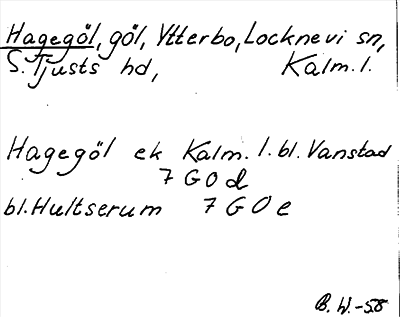 Hagegöl, göl, Ytterbo, Locknevi sn,
S. Tjusts hd, Kalm. l.
Hagegöl ek Kalm. l. bl. Vanstad
7 G O d
bl. Hultserum 7 G O e
B. W. -58